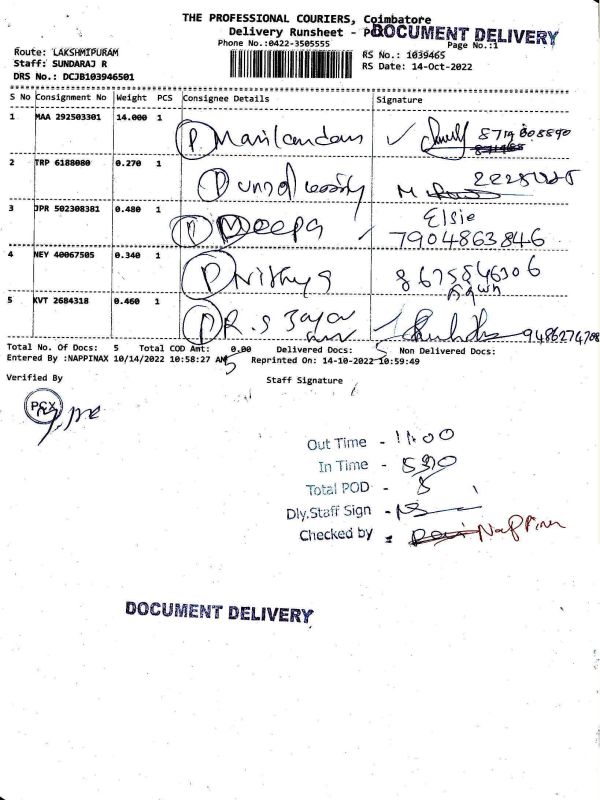 THE PROFESSIONAL COURIERS, Coimbatore
Delivery Runsheet -
DOCUMENT DELIVERY
Phone No.:0422-3505555
Page No.:1
Route: LAKSHMIPURAM
RS No.: 1039465
Staff: SUNDARAJ R
RS Date: 14-Oct-2022
DRS No.: DCJB103946501
S No Consignment No Weight PCS Consignee Details Signature
1 MAA 292503301 14.000 1 P Manikandan
2 TRP 6188080 0.270 1 P
3 JPR 502308381 0.480 1 P Deepa Elsie
7904863846
4 NEY 40067505 0.340 1 P Nithya 8675846306
5 KVT 2684318 0.460 1 P R.S 9486274708
Total No. Of Docs: 5 Total COD Amt: 0.00 Delivered Docs: 5 Non Delivered Docs:
Entered By :NAPPINAX 10/14/2022 10:58:27 AM Reprinted On: 14-10-2022 10:59:49
5
Verified By
Staff Signature
PCX
Out Time - 11:00
In Time - 530
Total POD - 5
Dly.Staff Sign -
Checked by :
DOCUMENT DELIVERY